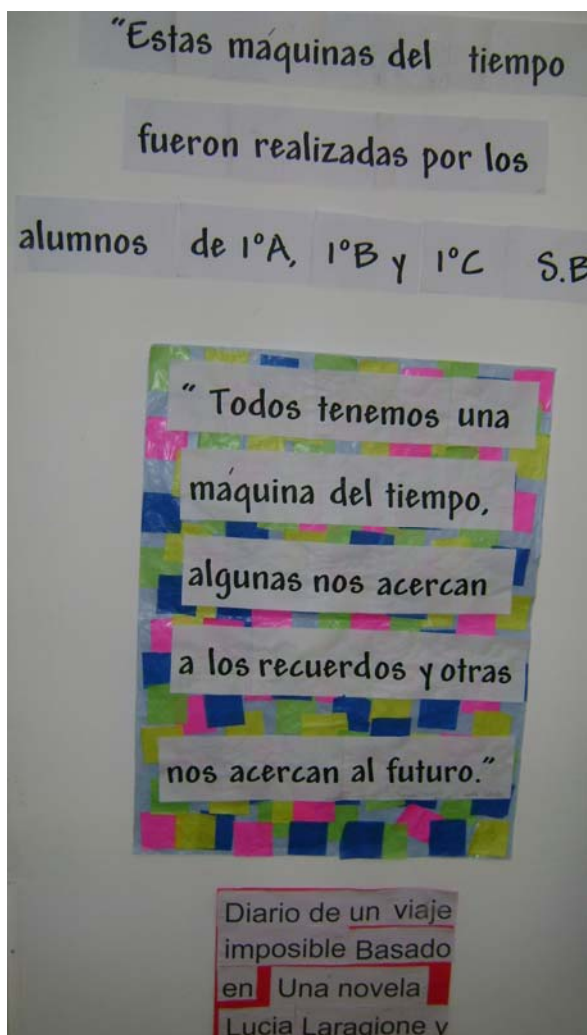 "Estas máquinas del tiempo
fueron realizadas por los
alumnos de 1ºA, 1ºB y 1ºC S.B
" Todos tenemos una
máquina del tiempo,
algunas nos acercan
a los recuerdos y otras
nos acercan al futuro."
Diario de un viaje
imposible Basado
en Una novela
Lucia Laragione y